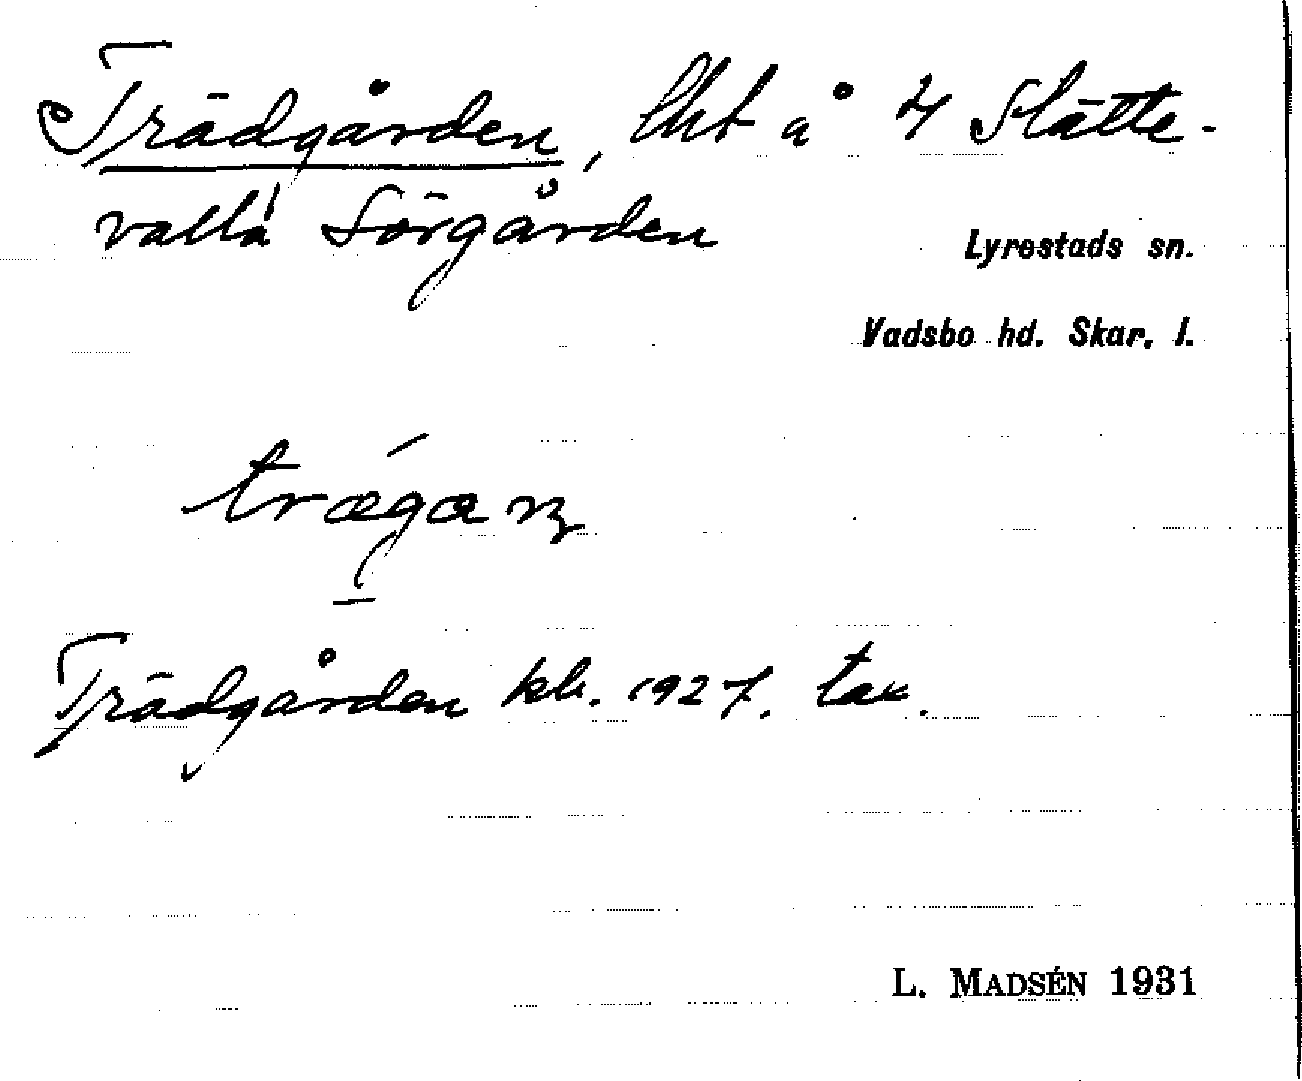 Trädgården, lht å 4 Slätte-
valla Sörgården
Lyrestads sn.
Vadsbo hd. Skar. l.
trægan
Trädgården kb. 1927. tax.
L. MADSÉN 1931